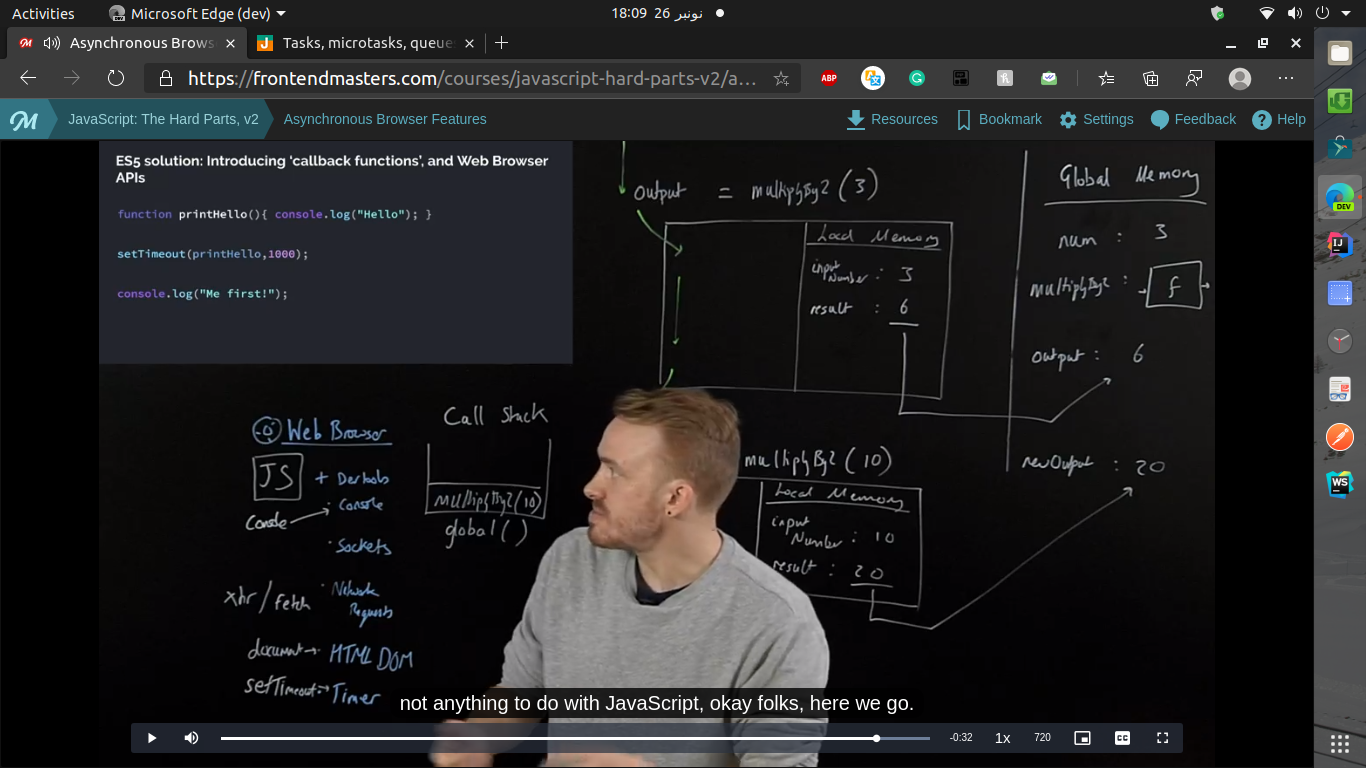 Activities
Microsoft Edge (dev)
18:09 26 نونبر
Asynchronous Brows
Tasks, microtasks, queues
https://frontendmasters.com/courses/javascript-hard-parts-v2/a...
ABP
JavaScript: The Hard Parts, v2
Asynchronous Browser Features
Resources
Bookmark
Settings
Feedback
Help
ES5 solution: Introducing ‘callback functions’, and Web Browser
APIs
function printHello(){ console.log("Hello"); }
setTimeout(printHello,1000);
console.log("Me first!");
Output = multiplyBy2 (3)
Local Memory
input
Number : 3
result : 6
Global Memory
num : 3
multiplyBy2 : f
output : 6
newOutput : 20
Web Browser
JS + Dev tools
Console
· Console
· Sockets
xhr / fetch
· Network
Requests
document
HTML DOM
setTimeout
Timer
Call Stack
multiplyBy2(10)
global()
multiplyBy2 (10)
Local Memory
input
Number : 10
result : 20
not anything to do with JavaScript, okay folks, here we go.
-0:32
1x
720
CC
DEV
IJ
WS